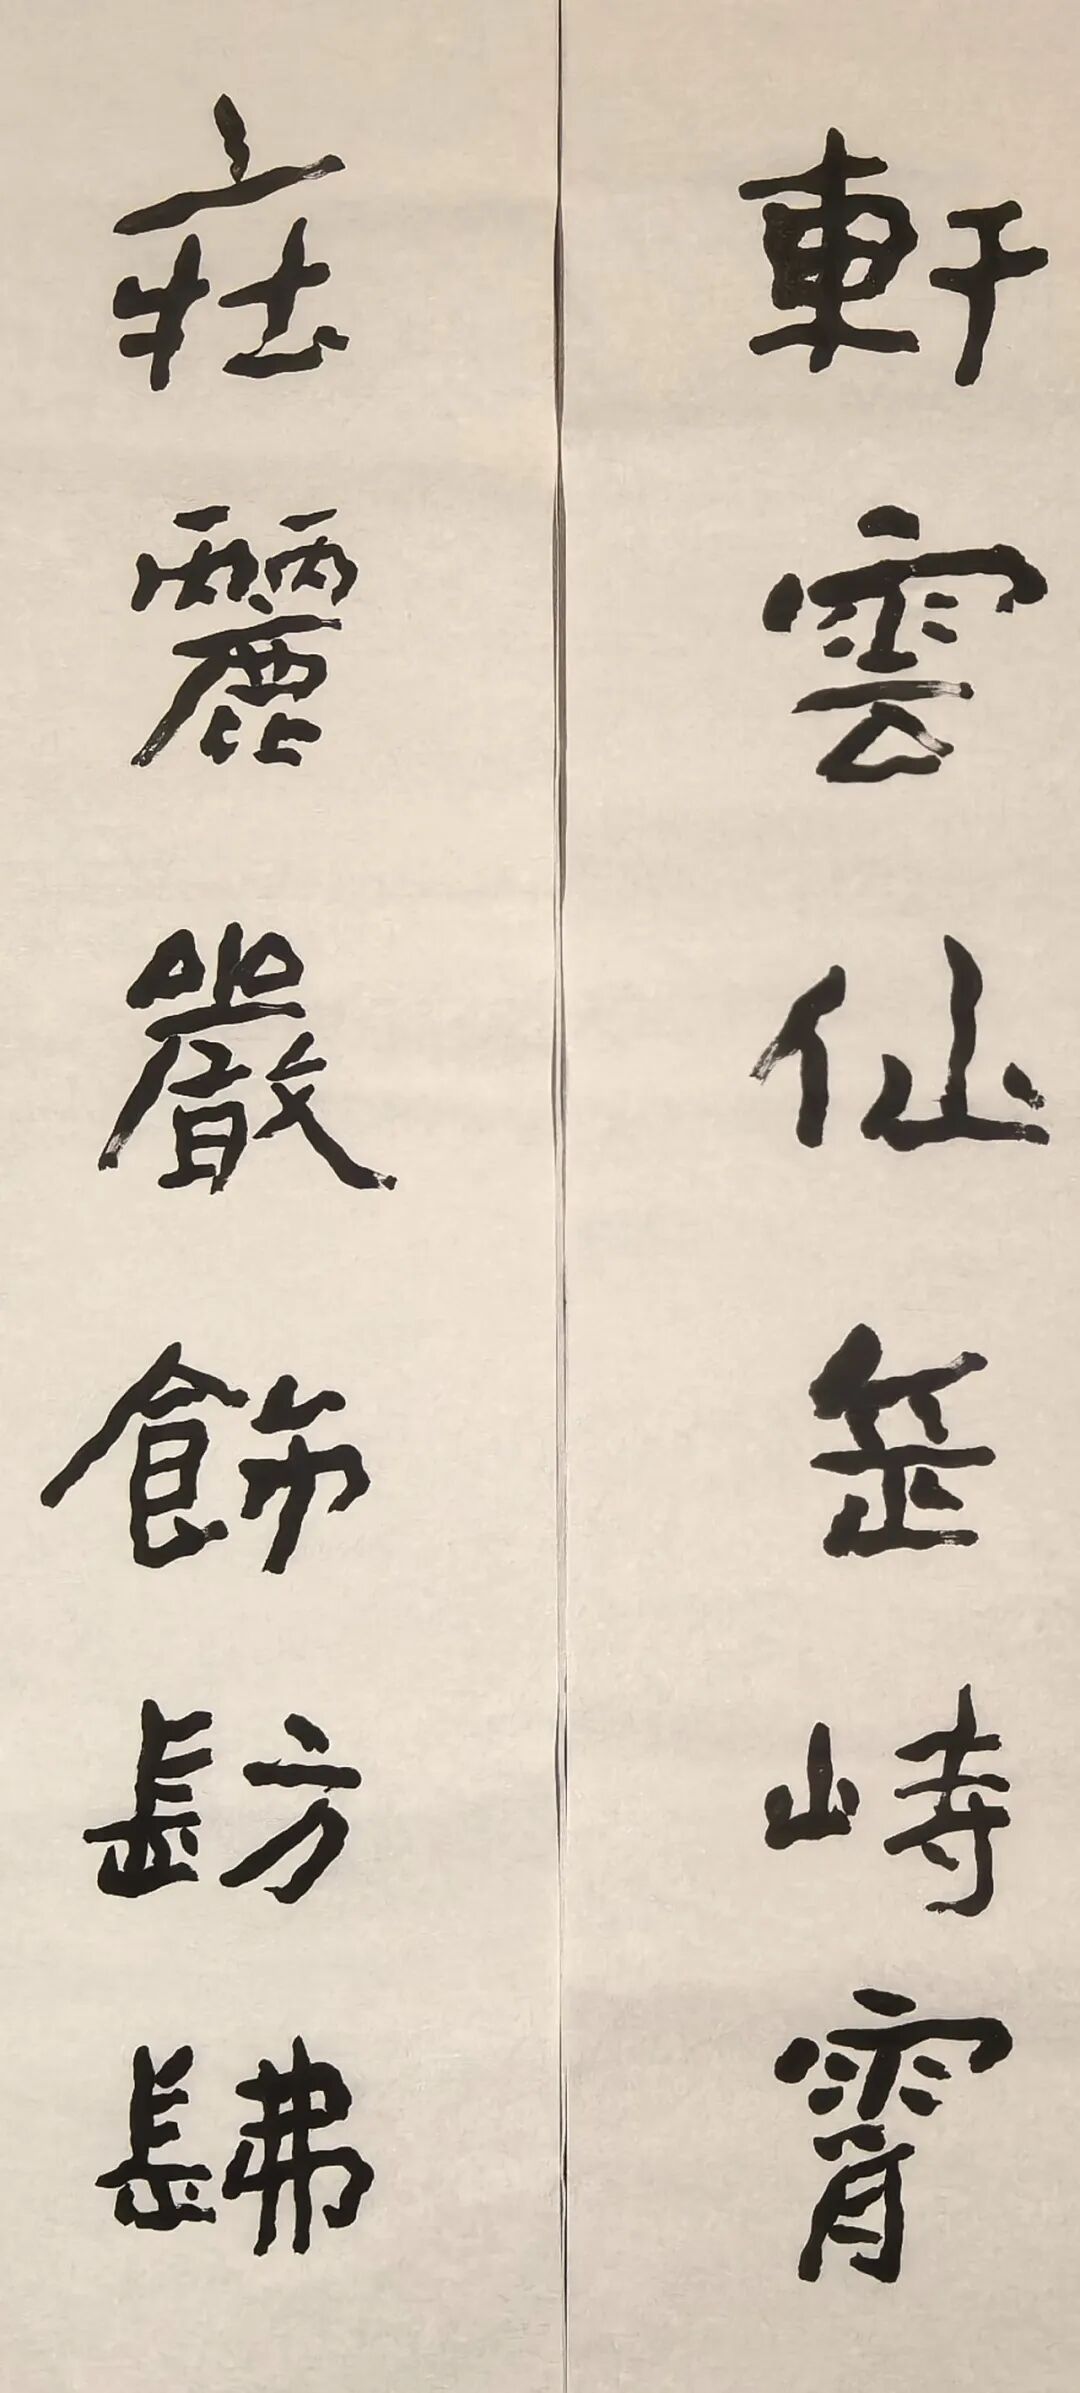 軒雲仙峙霄
莊麗嚴飾髣髴